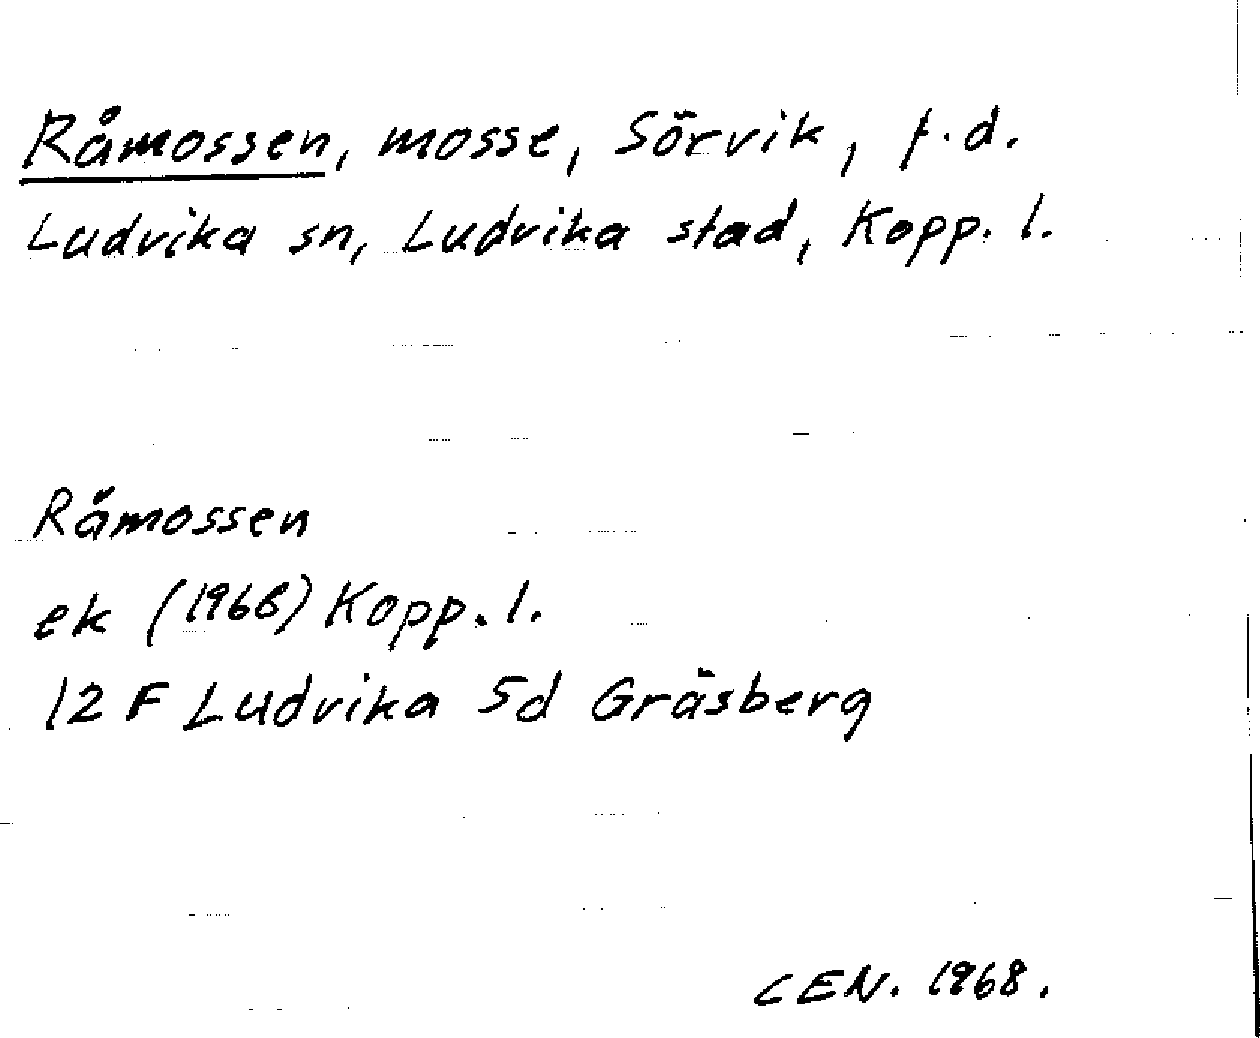 Råmossen, mosse, Sörvik, f.d.
Ludvika sn, Ludvika stad, Kopp. l.
Råmossen
ek (1968) Kopp. l.
12 F Ludvika 5d Gräsberg
CEN. 1968.